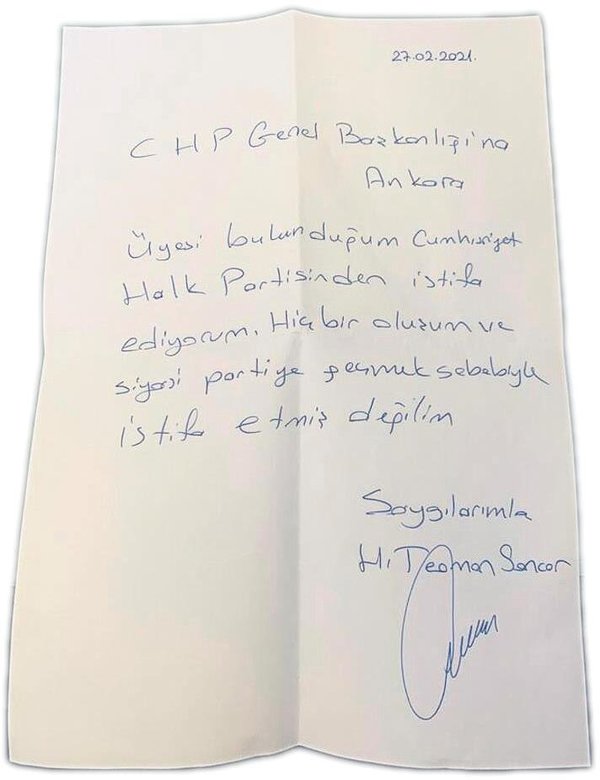 27.02.2021.
CHP Genel Başkanlığı'na
Ankara
Üyesi bulunduğum Cumhuriyet
Halk Partisinden istifa
ediyorum. Hiç bir oluşum ve
siyasi partiye geçmek sebebiyle
istifa etmiş değilim
Saygılarımla
H. Teoman Sancar